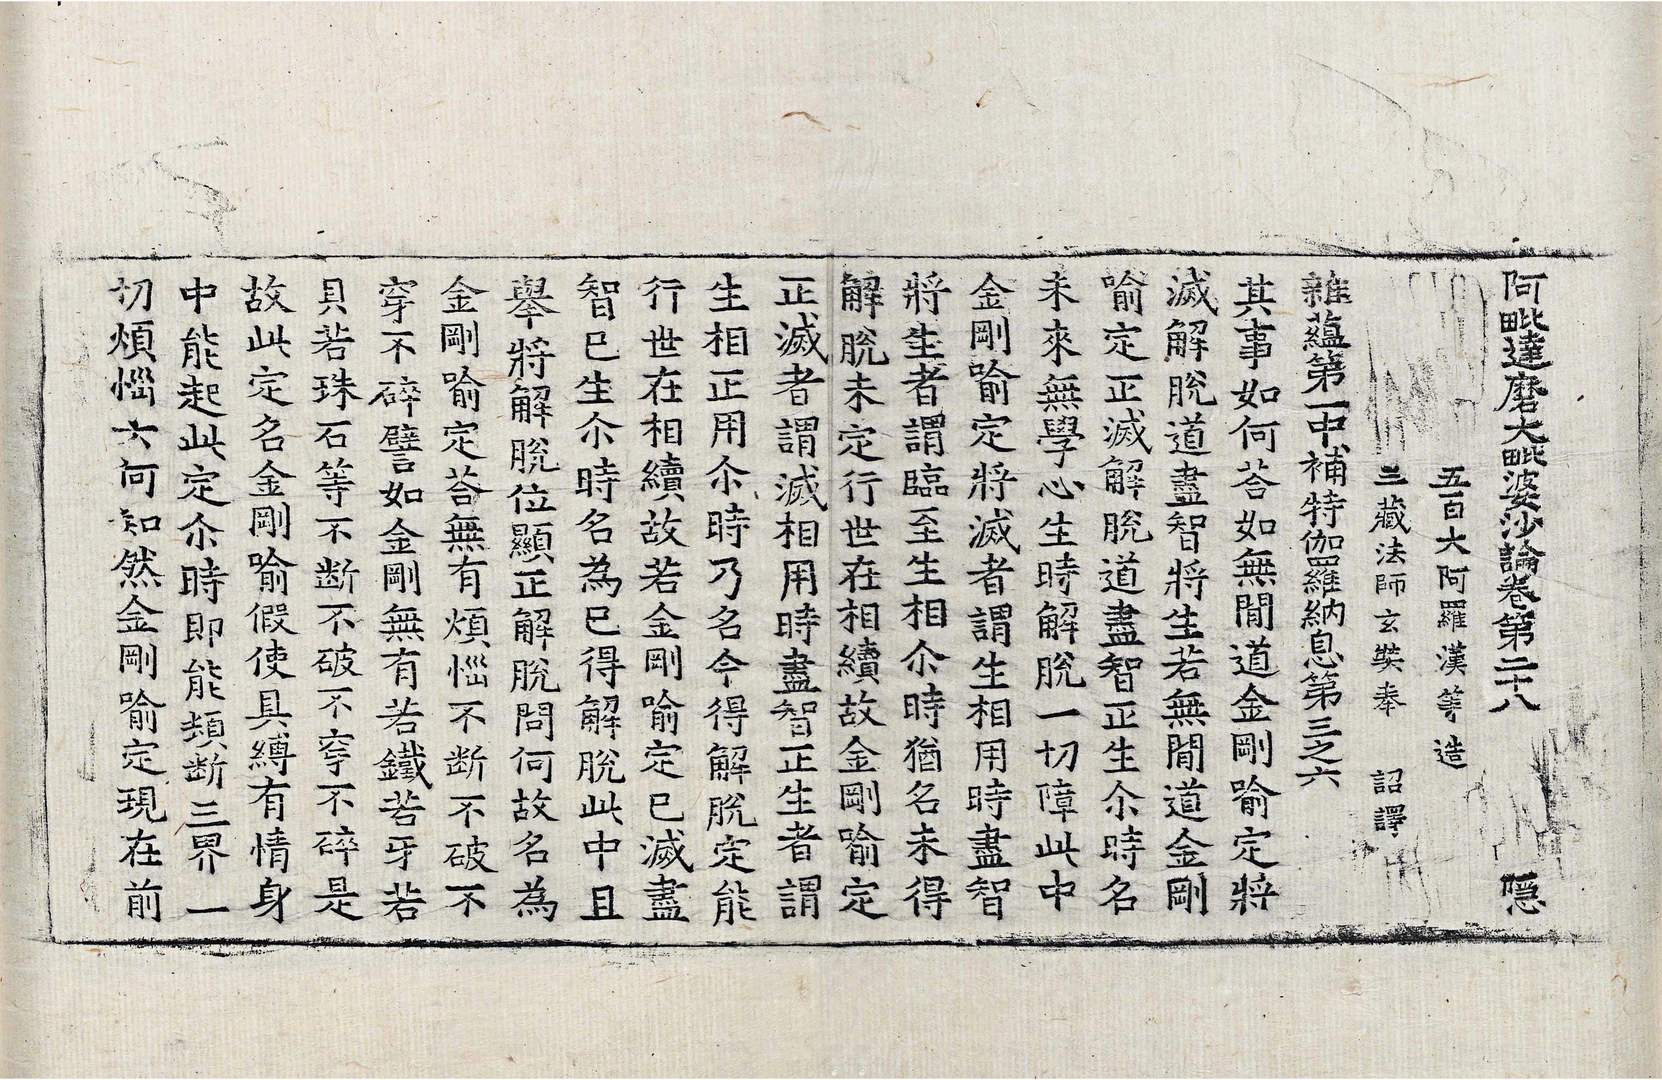 阿毗達磨大毗婆沙論卷第二十八 隱
五百大阿羅漢等造
三藏法師玄奘奉 詔譯
雜蘊第一中補特伽羅納息第三之六
其事如何荅如無閒道金剛喻定將
滅解脫道盡智將生若無閒道金剛
喻定正滅解脫道盡智正生尒時名
未來無學心生時解脫一切障此中
金剛喻定將滅者謂生相用時盡智
將生者謂臨至生相尒時猶名未得
解脫未定行世在相續故金剛喻定
正滅者謂滅相用時盡智正生者謂
生相正用尒時乃名今得解脫定能
行世在相續故若金剛喻定已滅盡
智已生尒時名為已得解脫此中且
舉將解脫位顯正解脫問何故名為
金剛喻定荅無有煩惱不斷不破不
穿不碎譬如金剛無有若鐵若牙若
貝若珠石等不斷不破不穿不碎是
故此定名金剛喻假使具縛有情身
中能起此定尒時即能頓斷三界一
切煩惱云何知然金剛喻定現在前